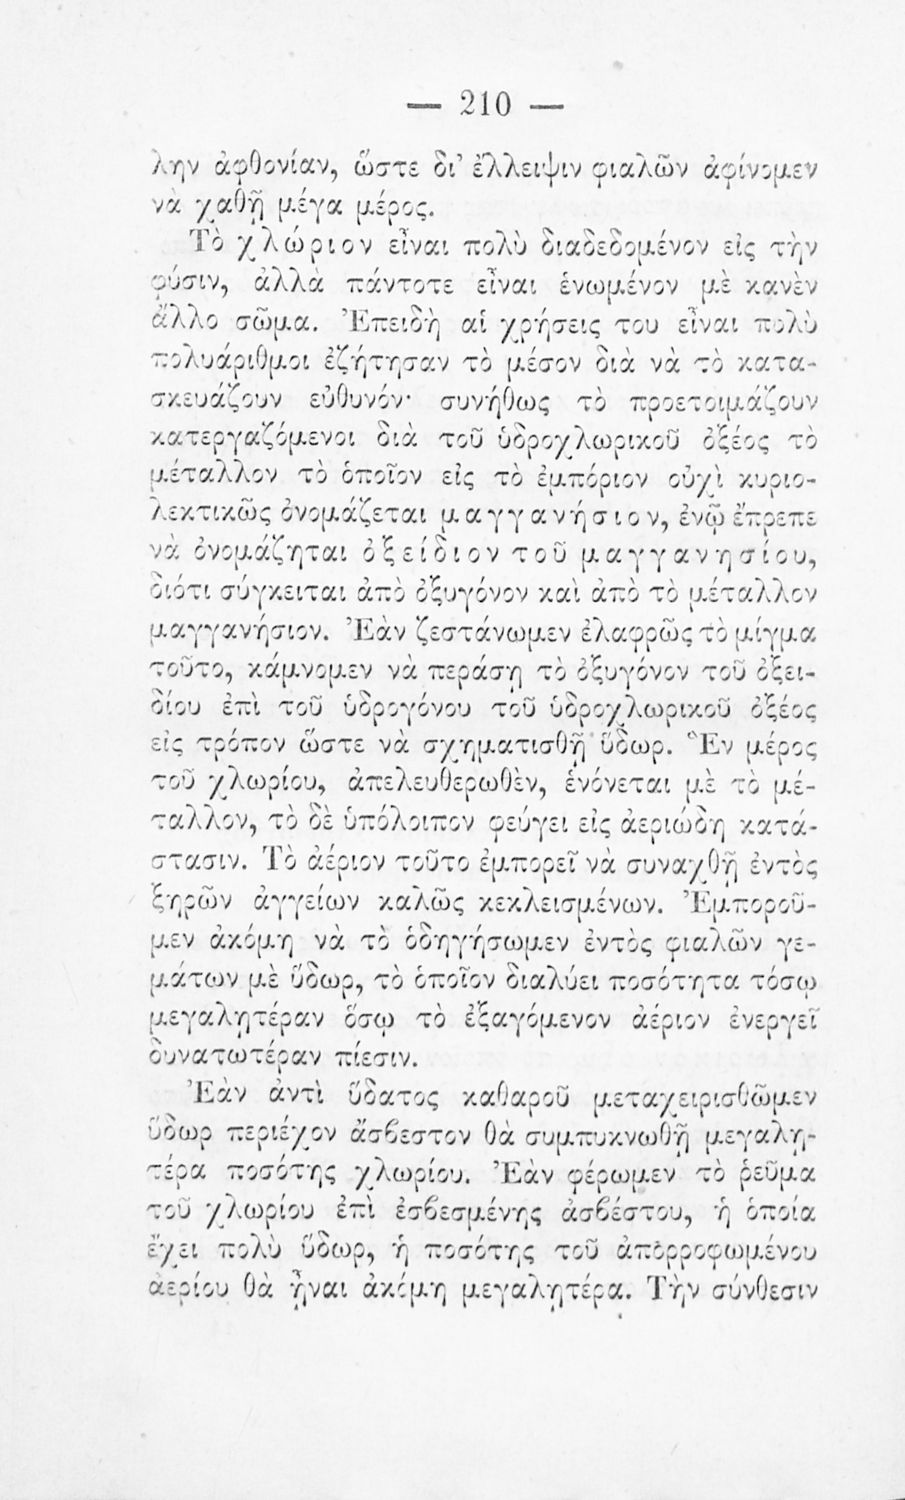 — 210 —
λην ἀφθονίαν, ὥστε δι’ ἔλλειψιν φιαλῶν ἀφίνομεν
νὰ χαθῇ μέγα μέρος.
Τὸ χλώριον εἶναι πολὺ διαδεδομένον εἰς τὴν
φύσιν, ἀλλὰ πάντοτε εἶναι ἑνωμένον μὲ κανὲν
ἄλλο σῶμα. Ἐπειδὴ αἱ χρήσεις του εἶναι πολὺ
πολυάριθμοι ἐζήτησαν τὸ μέσον διὰ νὰ τὸ κατα-
σκευάζουν εὐθυνόν· συνήθως τὸ προετοιμάζουν
κατεργαζόμενοι διὰ τοῦ ὑδροχλωρικοῦ ὀξέος τὸ
μέταλλον τὸ ὁποῖον εἰς τὸ ἐμπόριον οὐχὶ κυριο-
λεκτικῶς ὀνομάζεται μαγγανήσιον, ἐνῷ ἔπρεπε
νὰ ὀνομάζηται ὀξείδιον τοῦ μαγγανησίου,
διότι σύγκειται ἀπὸ ὀξυγόνον καὶ ἀπὸ τὸ μέταλλον
μαγγανήσιον. Ἐὰν ζεστάνωμεν ἐλαφρῶς τὸ μίγμα
τοῦτο, κάμνομεν νὰ περάσῃ τὸ ὀξυγόνον τοῦ ὀξει-
δίου ἐπὶ τοῦ ὑδρογόνου τοῦ ὑδροχλωρικοῦ ὀξέος
εἰς τρόπον ὥστε νὰ σχηματισθῇ ὕδωρ. Ἓν μέρος
τοῦ χλωρίου, ἀπελευθερωθὲν, ἑνόνεται μὲ τὸ μέ-
ταλλον, τὸ δὲ ὑπόλοιπον φεύγει εἰς ἀεριώδη κατά-
στασιν. Τὸ ἀέριον τοῦτο ἐμπορεῖ νὰ συναχθῇ ἐντὸς
ξηρῶν ἀγγείων καλῶς κεκλεισμένων. Ἐμποροῦ-
μεν ἀκόμη νὰ τὸ ὁδηγήσωμεν ἐντὸς φιαλῶν γε-
μάτων μὲ ὕδωρ, τὸ ὁποῖον διαλύει ποσότητα τόσῳ
μεγαλητέραν ὅσῳ τὸ ἐξαγόμενον ἀέριον ἐνεργεῖ
δυνατωτέραν πίεσιν.
Ἐὰν ἀντὶ ὕδατος καθαροῦ μεταχειρισθῶμεν
ὕδωρ περιέχον ἄσβεστον θὰ συμπυκνωθῇ μεγαλη-
τέρα ποσότης χλωρίου. Ἐὰν φέρωμεν τὸ ῥεῦμα
τοῦ χλωρίου ἐπὶ ἐσβεσμένης ἀσβέστου, ἡ ὁποία
ἔχει πολὺ ὕδωρ, ἡ ποσότης τοῦ ἀπορροφωμένου
ἀερίου θὰ ᾖναι ἀκόμη μεγαλητέρα. Τὴν σύνθεσιν